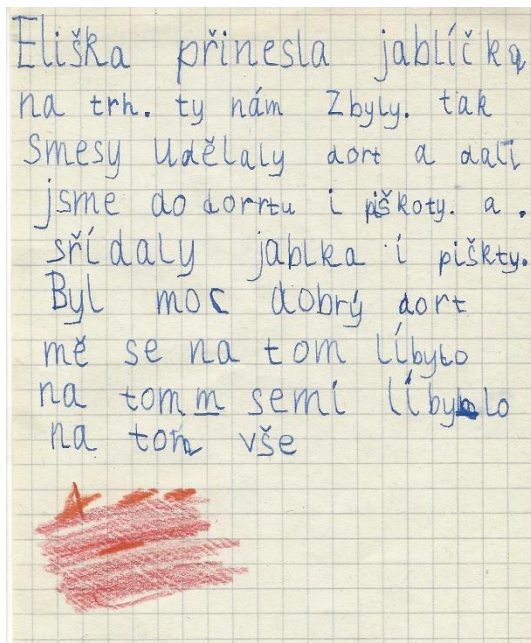 Eliška přinesla jablíčka
na trh. ty nám Zbyly. tak
Smesy Udělaly dort a dali
jsme do dorrtu i piškoty. a .
sřídaly jablka i piškty.
Byl moc dobrý dort
mě se na tom líbylo
na tomm semí líbylo
na tom vše